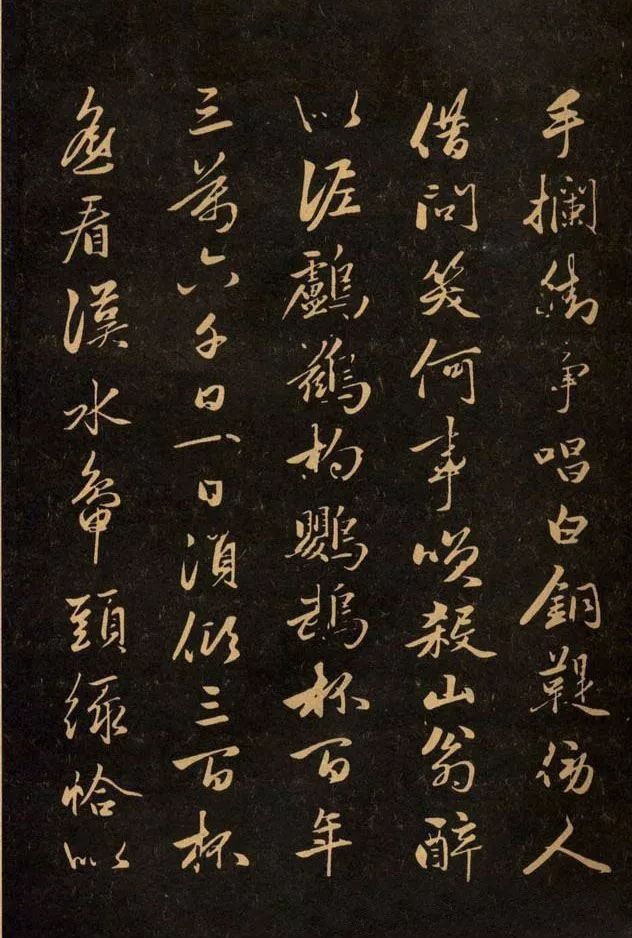 手攔街争唱白銅鞮傍人
借問笑何事咲殺山翁醉
似泥鸕鶿杓鸚鵡杯百年
三萬六千日一日須傾三百杯
遥看漢水鴨頭緑恰似